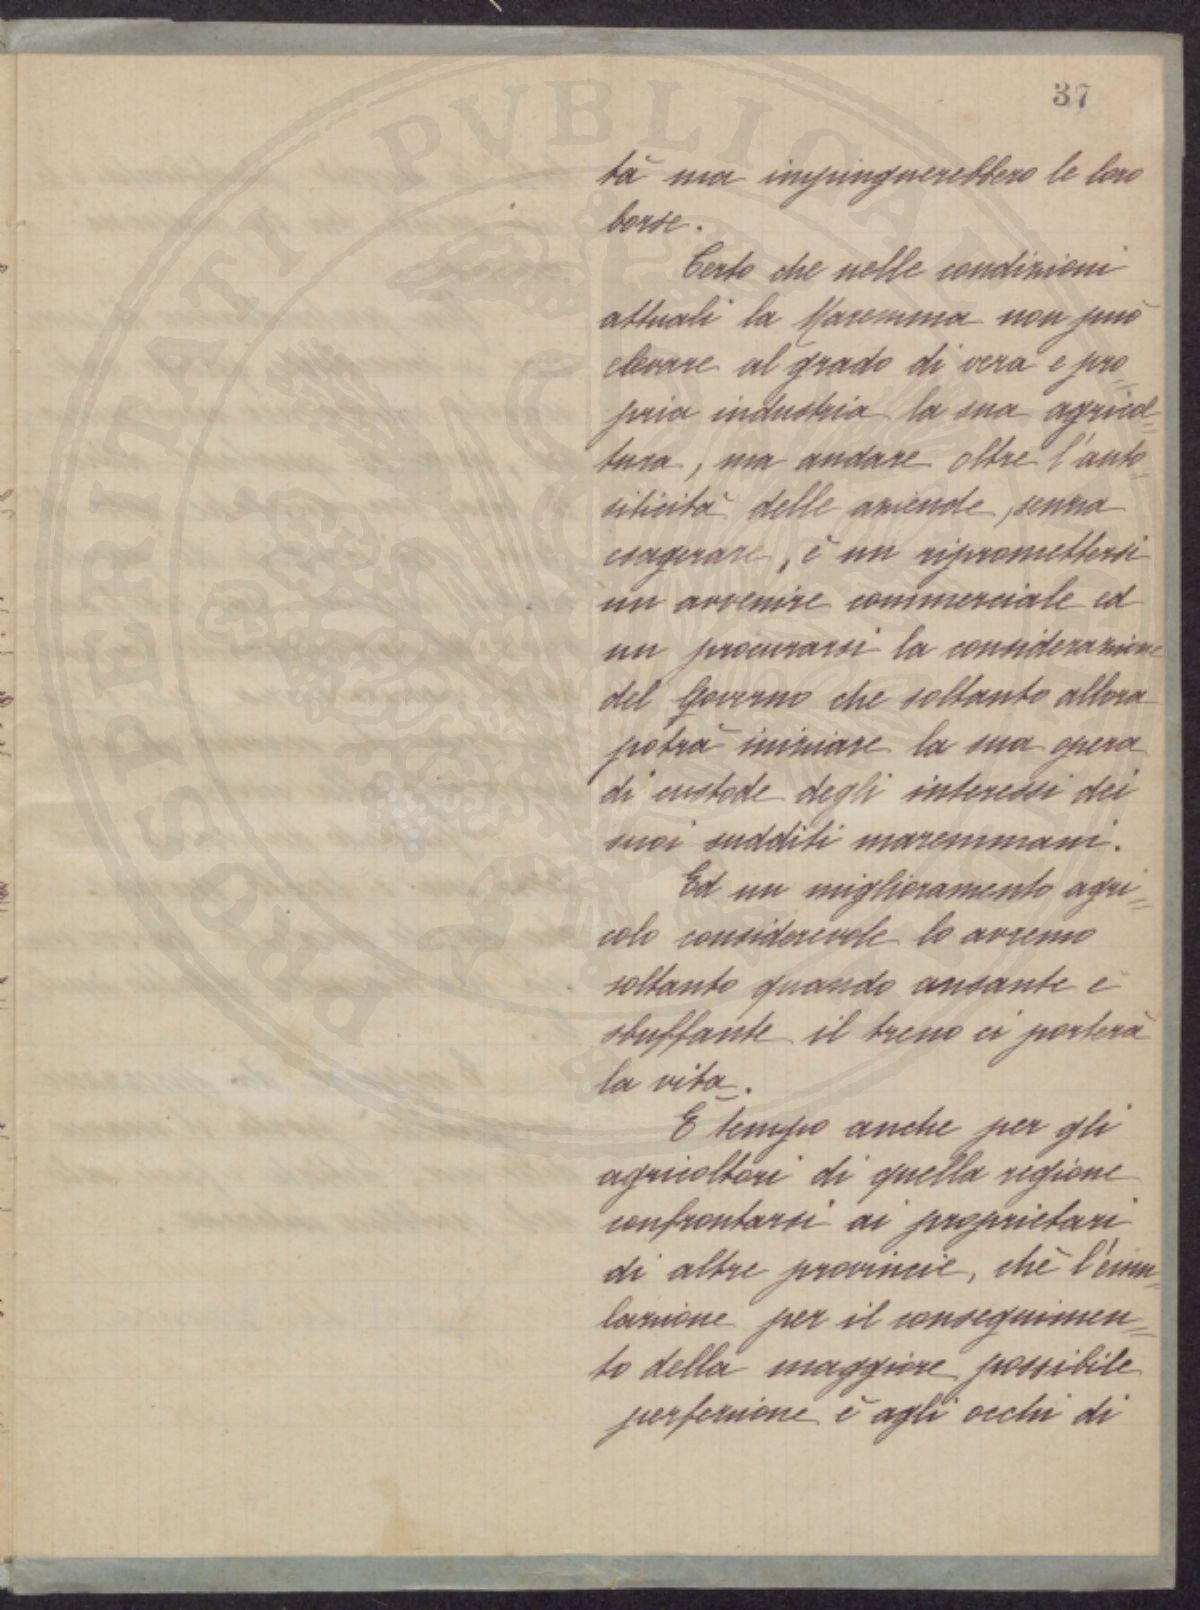 37
tà ma impinguerebbero le loro
borse.
Certo che nelle condizioni
attuali la Maremma non può
elevare al grado di vera e pro
pria industria la sua agricol=
tura, ma andare oltre l'auto
siticità delle aziende, senza
esagerare, è un ripromettersi
un avvenire commerciale ed
un procurarsi la considerazione
del Governo che soltanto allora
potrà iniziare la sua opera
di custode degli interessi dei
suoi sudditi maremmani.
Ed un miglioramento agri=
colo considerevole lo avremo
soltanto quando ansante e
sbuffante il treno ci porterà
la vita.
È tempo anche per gli
agricoltori di quella regione
confrontarsi ai proprietari
di altre provincie, chè l'emu=
lazione per il conseguimen=
to della maggiore possibile
perfezione è agli occhi di
PROSPERITATI PUBLICAE